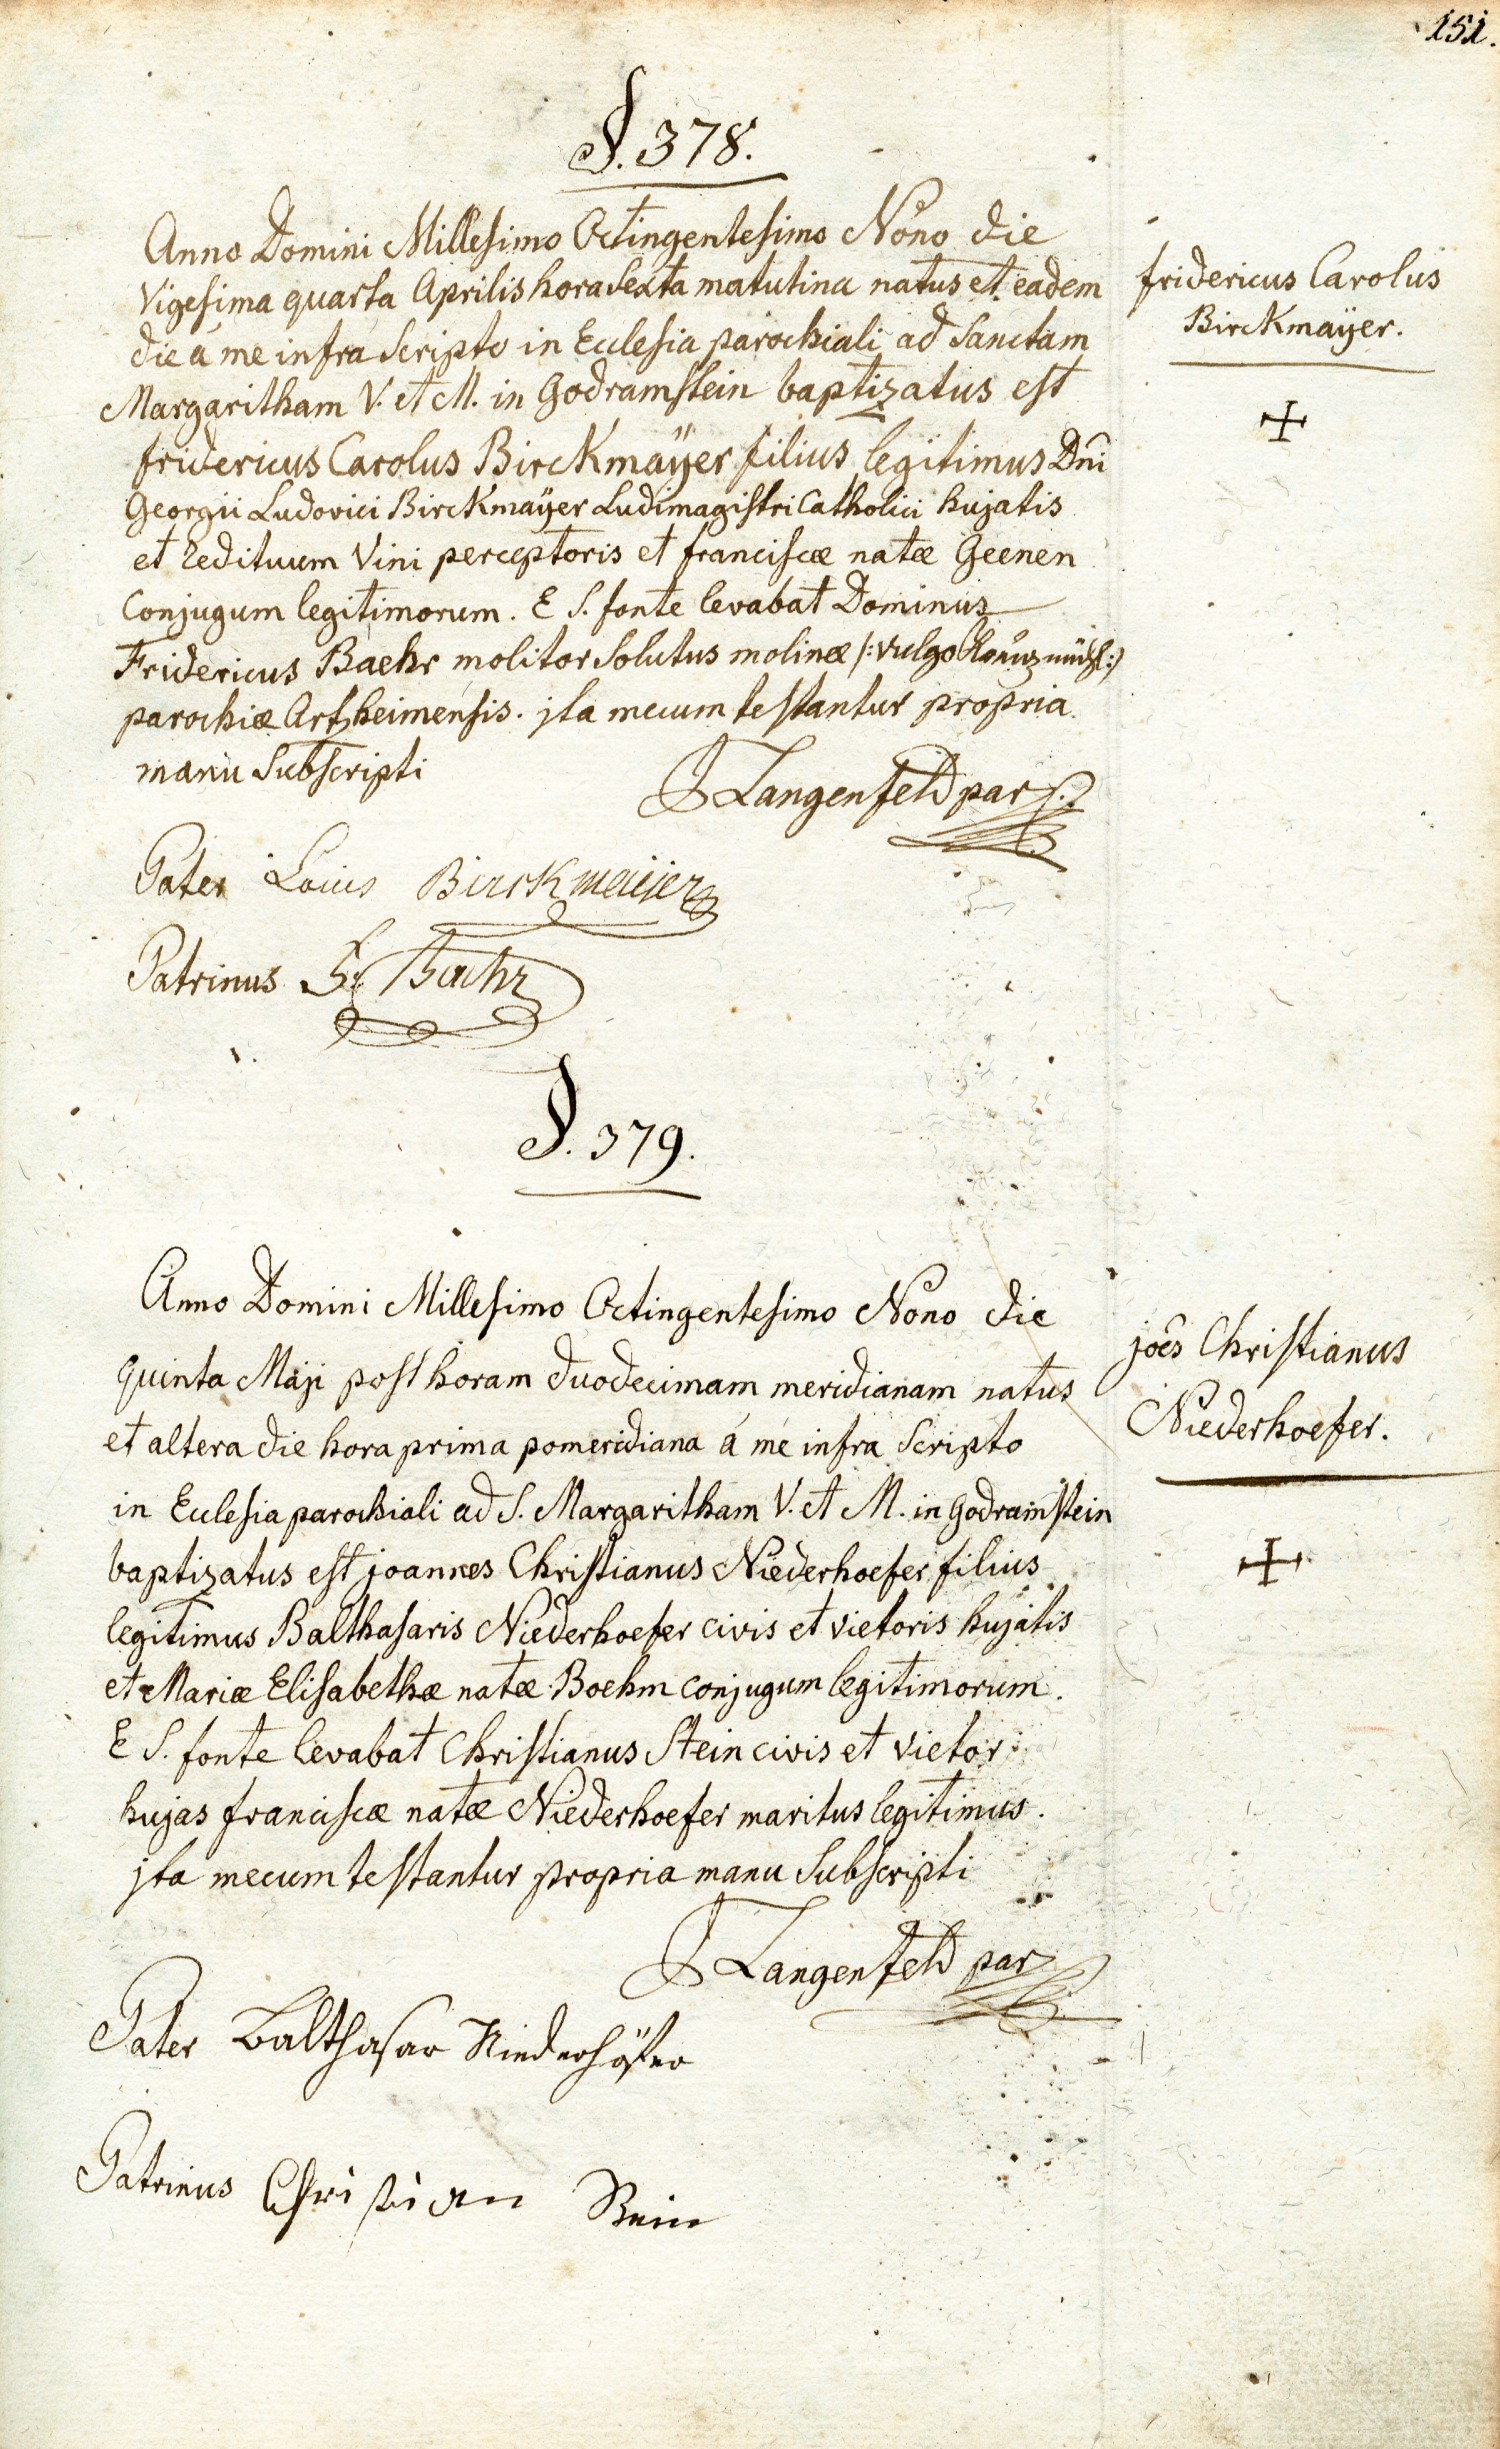 151.
§. 378.
Anno Domini Millesimo Octingentesimo Nono die
Vigesima quarta Aprilis hora sexta matutina natus et eadem
die á me infra scripto in Ecclesia parochiali ad Sanctam
Margaritham V. et M. in Godramstein baptizatus est
fridericus Carolus Birckmaÿer filius legitimus Dn̄i
Georgii Ludovici Birckmaÿer Ludimagistri Catholici hujatis
et redituum Vini perceptoris et franciscæ natæ Geenen
Conjugum legitimorum. E S. fonte levabat Dominus
Fridericus Baehr molitor solutus molinæ /: vulgo :/
parochiæ Artzheimensis. jta mecum testantur propria
manu Subscripti
J Langenfeld par
Pater Louis Birckmaijer
Patrinus F. Baehr
fridericus Carolus
Birckmaÿer.
§. 379.
Anno Domini Millesimo Octingentesimo Nono die
quinta Maji post horam duodecimam meridianam natus
et altera die hora prima pomeridiana á me infra scripto
in Ecclesia parochiali ad S. Margaritham V. et M. in Godramstein
baptizatus est joannes Christianus Niederhoefer filius
legitimus Balthasaris Niederhoefer civis et vietoris hujatis
et Mariæ Elisabethæ natæ Boehm conjugum legitimorum.
E S. fonte levabat Christianus Stein civis et vietor
hujas franciscæ natæ Niederhoefer maritus legitimus.
jta mecum testantur propria manu Subscripti
J Langenfeld par
Pater Balthasar Niederhöfer
Patrinus Christian Stein
joēs Christianus
Niederhoefer.